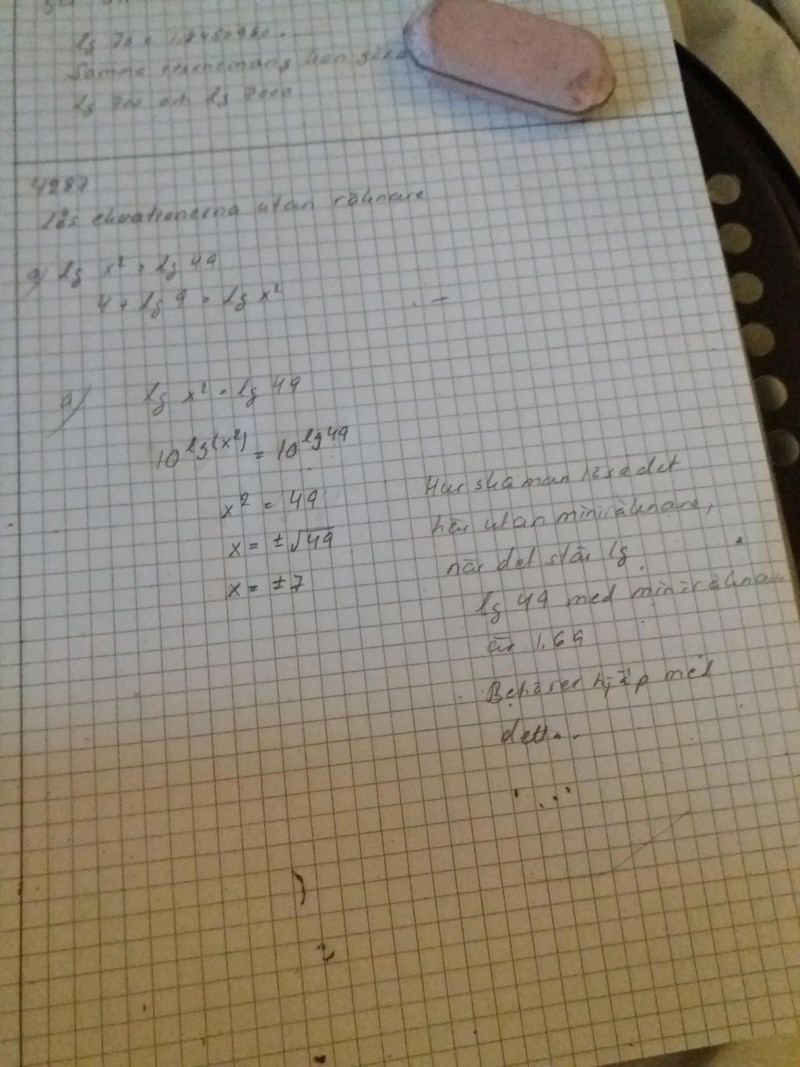 lg 70 = 1.8450980....
Samma resonemang kan göra
lg 700 och lg 7000
4287
Lös ekvationerna utan räknare
a) lg x² = lg 49
4 + lg 9 = lg x²
a) lg x² = lg 49
10^lg(x²) = 10^lg 49
x² = 49
x = ±√49
x = ±7
Hur ska man lösa det
här utan miniräknare,
när det står lg.
lg 49 med miniräknare
är 1.69
Behöver hjälp med
dett...